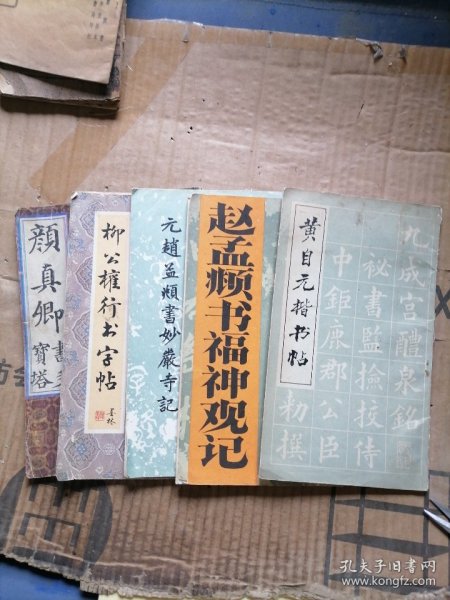 顔真卿書多
寶塔
柳公權行书字帖
墨林
元趙孟頫書妙嚴寺記
赵孟頫书福神观记
黄自元楷书帖
九成宫醴泉銘
秘書監撿挍侍
中鉅鹿郡公臣
勑撰
孔夫子旧书网
www.kongfz.com